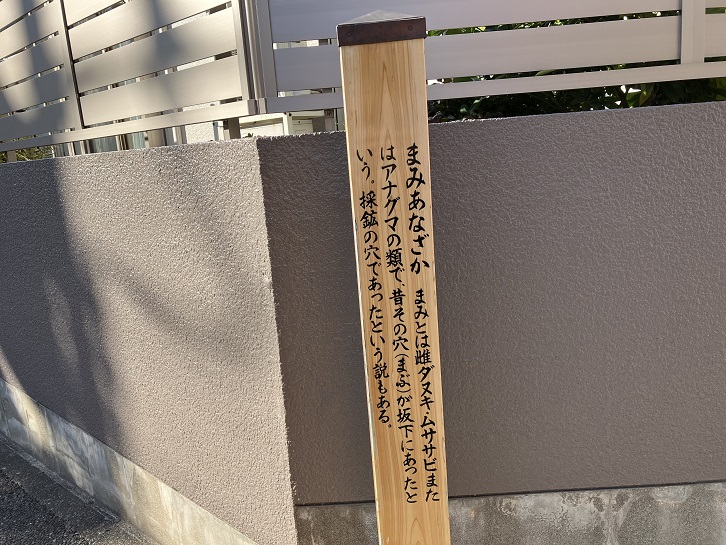 まみあなざか まみとは雌ダヌキ・ムササビまた
はアナグマの類で、昔その穴(まぶ)が坂下にあったと
いう。採鉱の穴であったという説もある。